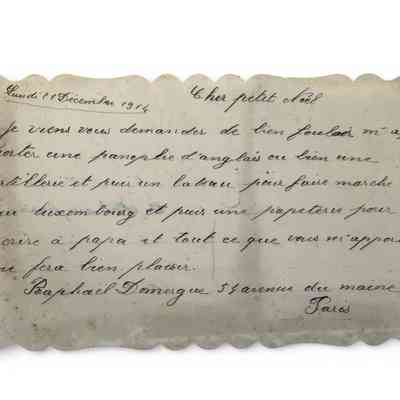 Lundi 21 Décembre 1914
Cher petit Noël
je viens vous demander de bien fouloir m'ap
orter une panoplie d'anglais ou bien une
rtillerie et puis un bateau pour faire marche
au luxembourg et puis une papeterie pour
crire à papa et tout ce que vous m'appor
me fera bien plaisir.
Raphaël Domergue 54 avenue du maine
Paris